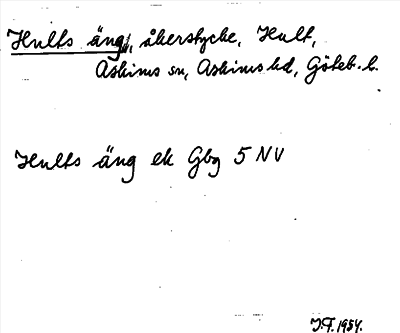 Hults äng, åkerstycke, Hult,
Askims sn, Askims hd, Göteb. l.
Hults äng ek Gbg 5 NV
J.F. 1954.